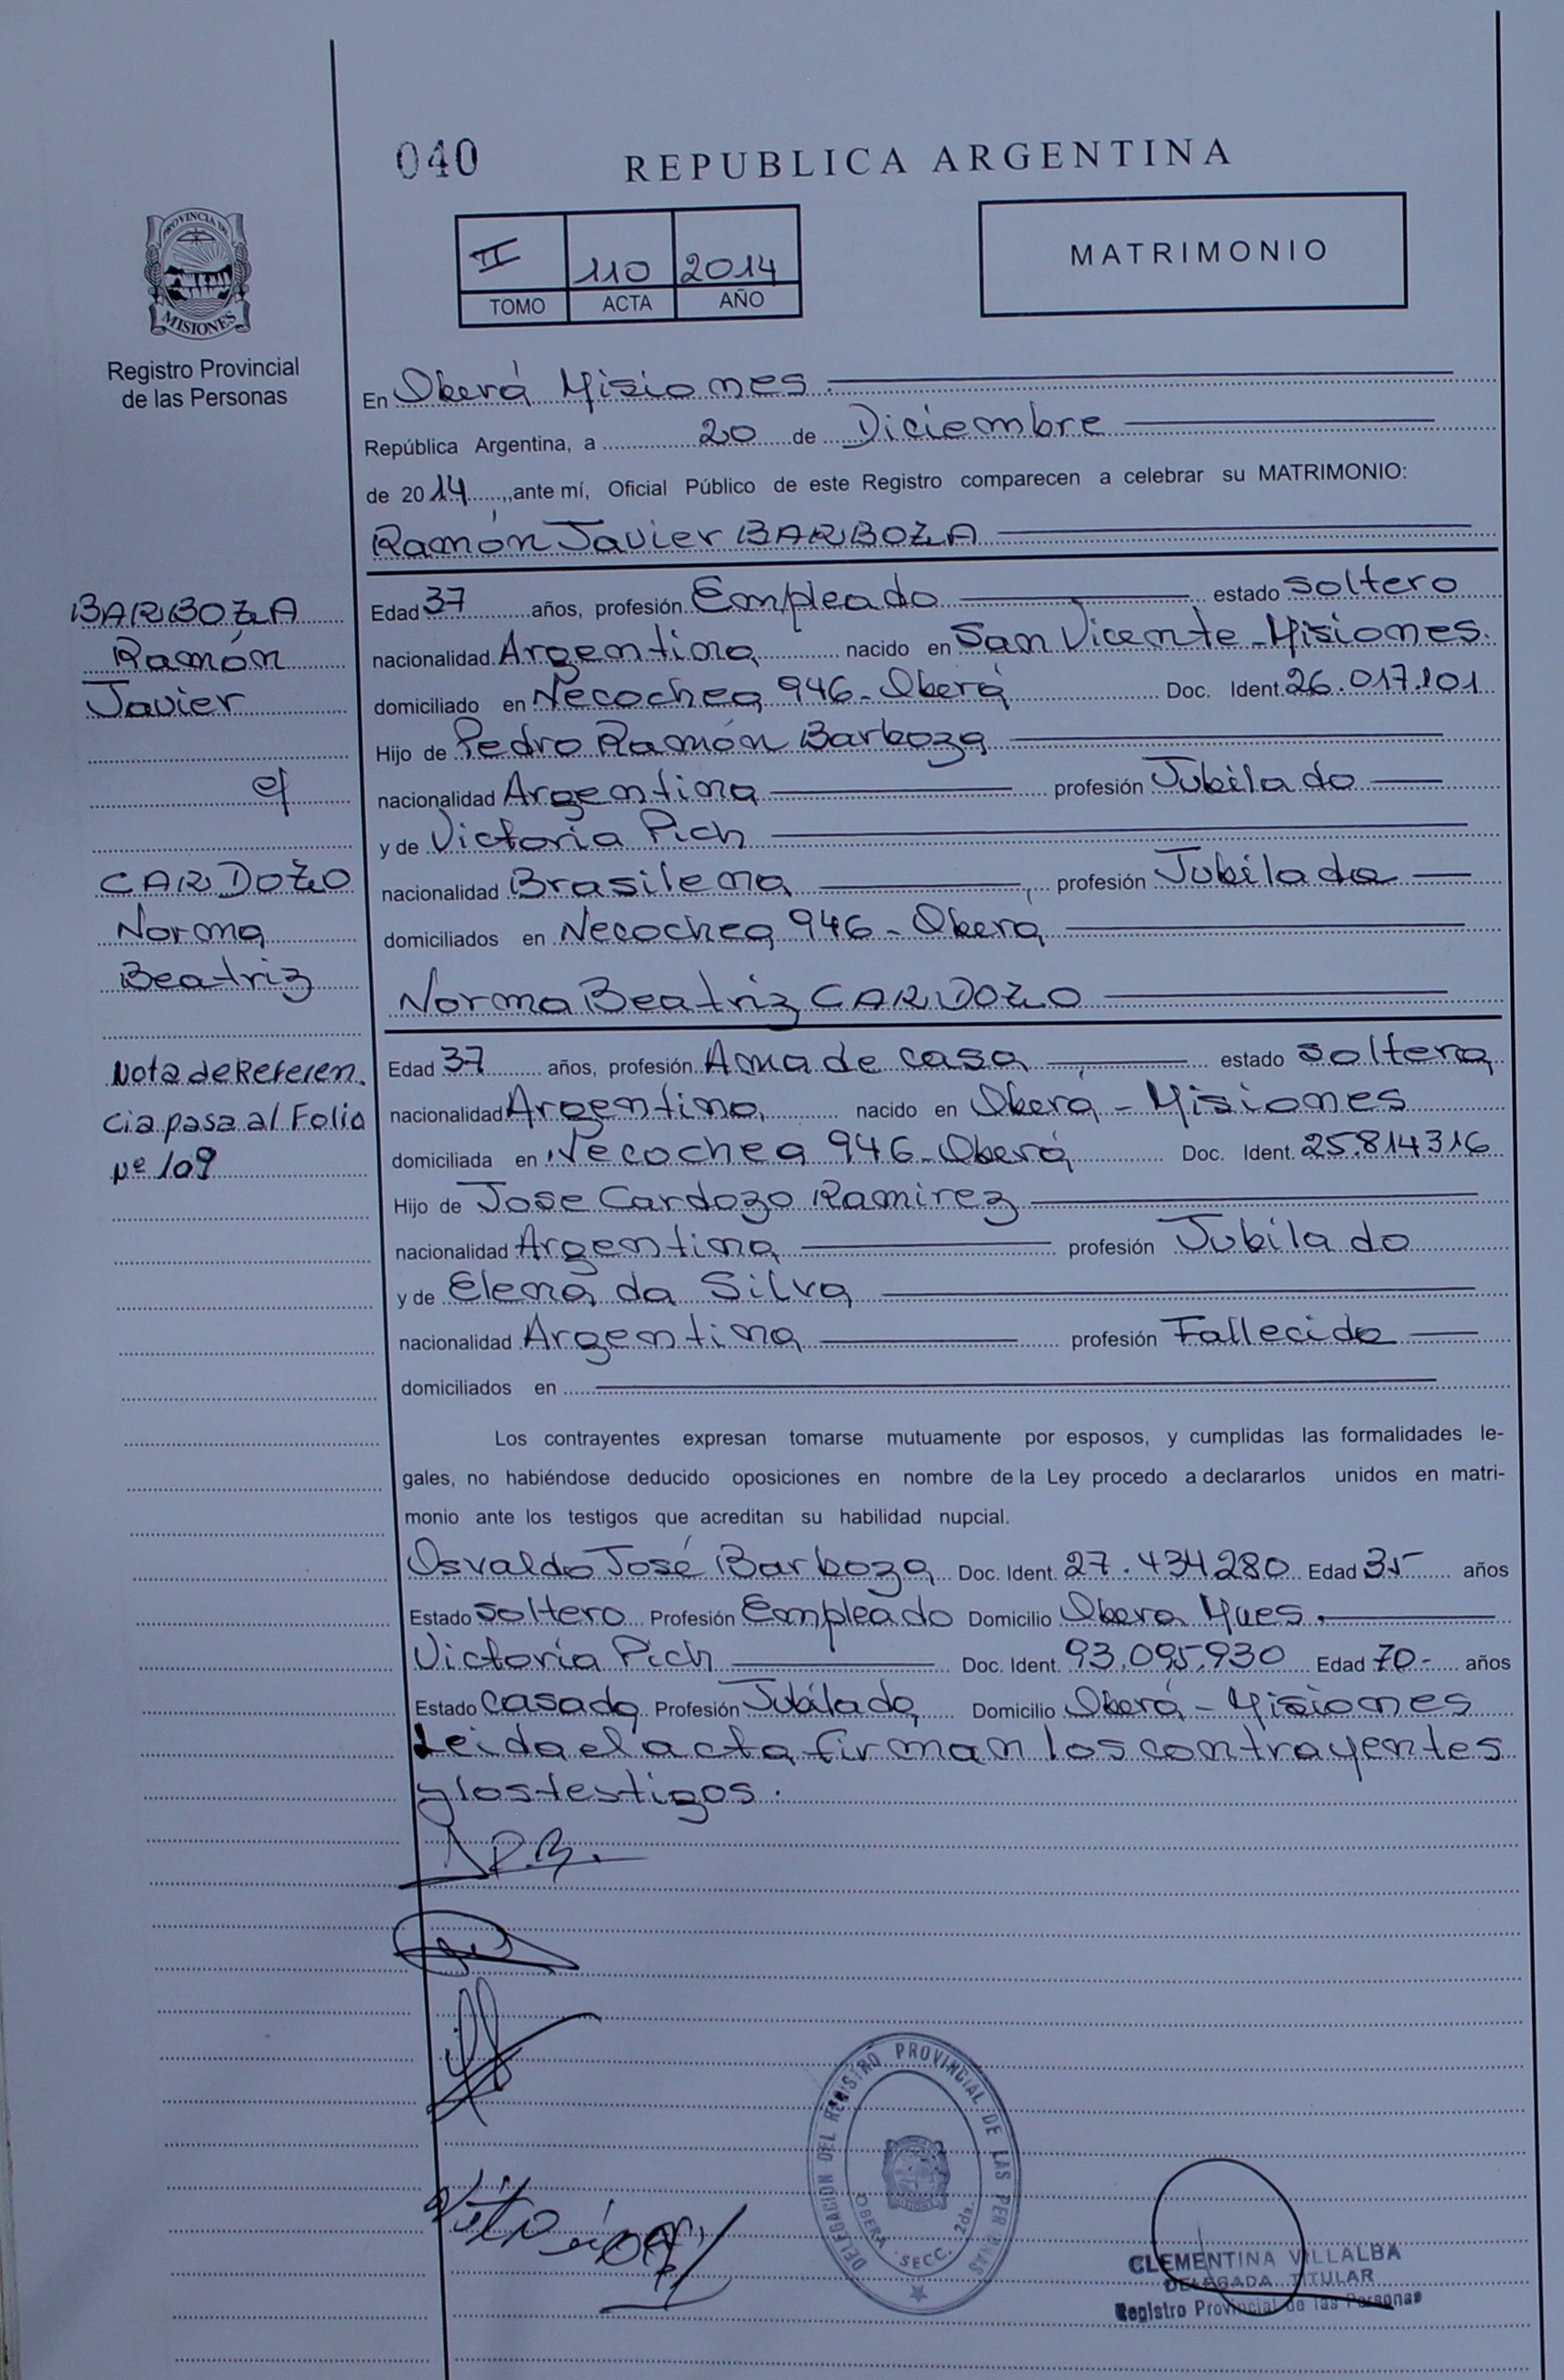 040
REPUBLICA ARGENTINA
II 110 2014
TOMO ACTA AÑO
MATRIMONIO
PROVINCIA DE
MISIONES
Registro Provincial
de las Personas
En Oberá Misiones.
República Argentina, a 20 de Diciembre
de 2014, ante mí, Oficial Público de este Registro comparecen a celebrar su MATRIMONIO:
Ramón Javier BARBOZA
BARBOZA
Ramón
Javier
c/
CARDOZO
Norma
Beatriz
Nota de Referen.
cia pasa al Folio
Nº 109
Edad 37 años, profesión Empleado estado soltero
nacionalidad Argentina nacido en San Vicente - Misiones.
domiciliado en Necochea 946 - Oberá Doc. Ident. 26.017.101
Hijo de Pedro Ramón Barboza
nacionalidad Argentina profesión Jubilado
y de Victoria Pich
nacionalidad Brasilena profesión Jubilada
domiciliados en Necochea 946 - Obera
Norma Beatriz CARDOZO
Edad 37 años, profesión Ama de casa estado soltera
nacionalidad Argentina nacido en Oberá - Misiones
domiciliada en Necochea 946 - Oberá Doc. Ident. 25.814316
Hijo de Jose Cardozo Ramirez
nacionalidad Argentina profesión Jubilado
y de Elena da Silva
nacionalidad Argentina profesión Fallecida
domiciliados en
Los contrayentes expresan tomarse mutuamente por esposos, y cumplidas las formalidades le-
gales, no habiéndose deducido oposiciones en nombre de la Ley procedo a declararlos unidos en matri-
monio ante los testigos que acreditan su habilidad nupcial.
Osvaldo José Barboza Doc. Ident. 27.434280 Edad 35 años
Estado soltero Profesión Empleado Domicilio Obera Mnes.
Victoria Pich Doc. Ident. 93.095.930 Edad 70- años
Estado casada Profesión Jubilada Domicilio Oberá - Misiones
Leida el acta firman los contrayentes
y los testigos.
DELEGACION DEL REGISTRO PROVINCIAL DE LAS PERSONAS
OBERA SECC. 2da.
CLEMENTINA VILLALBA
DELEGADA TITULAR
Registro Provincial de las Personas